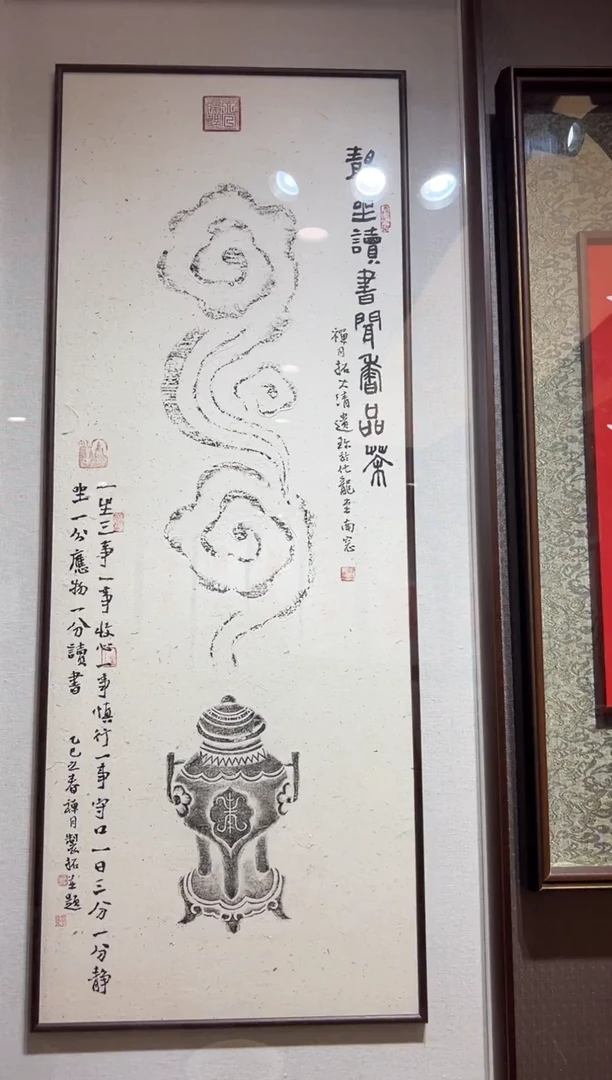 靜坐讀書聞香品茶
禪月拓大清遺珍於化龍堂南窓
一坐三事一事收心一事慎行一事守口一日三分一分静
坐一分應物一分讀書
乙巳之春禪月製拓並題